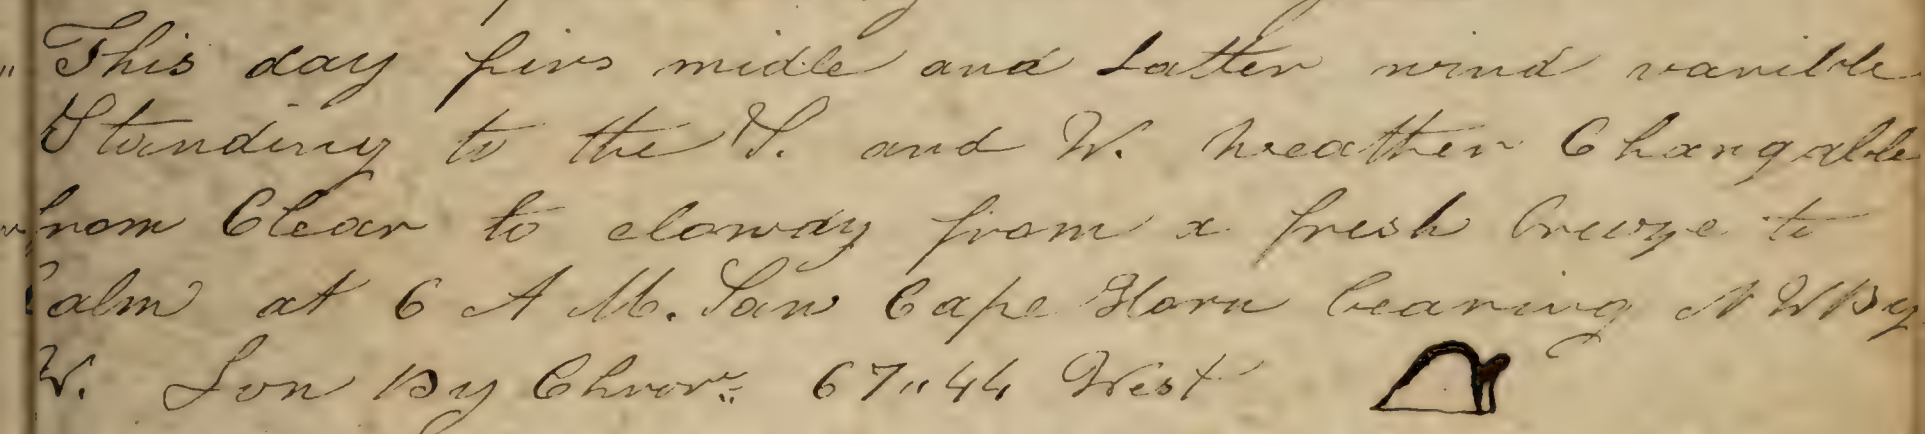 " This day firs midle and Latter wind varible
Standing to the S. and W. weather Changable
from Clear to clowdy from a fresh breeze to
Calm at 6 A M. Saw Cape Horn bearing N W By
W. Lon By Chron.. 67,,44 West